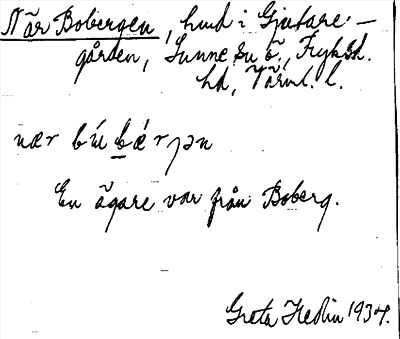 När Bobergen, hmd i Gjutare-
gården, Sunne sn Ö., Fryksd.
hd, Värml. l.
nær bú bǽrjən
En ägare var från Boberg.
Greta Hedin 1934.